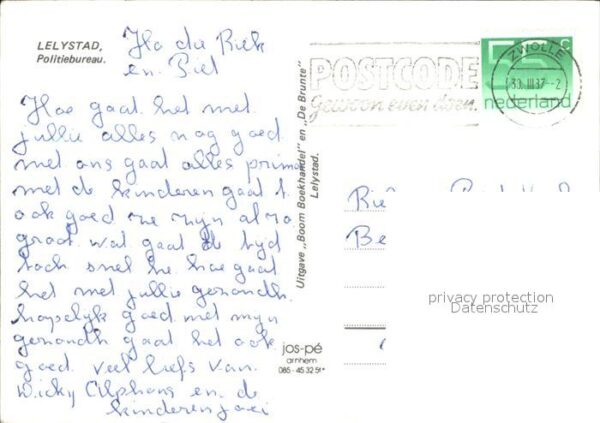 LELYSTAD,
Politiebureau.
en Piet
Hoe gaat het met
jullie alles nog goed
met ons gaat alles prima
met de kinderen gaat t
ook goed ze zijn al zo
groot wat gaat de tijd
toch snel he hoe gaat
het met jullie gezondh.
hopelijk goed met mijn
gezondh gaat het ook
goed. veel liefs van
Wicky Alphons en de
kinderen
Uitgave „Boom Boekhandel" en „De Brunte"
Lelystad.
jos-pé
arnhem
085-453251*
POSTCODE
Gewoon even doen.
ZWOLLE
55 c
nederland
Be
privacy protection
Datenschutz